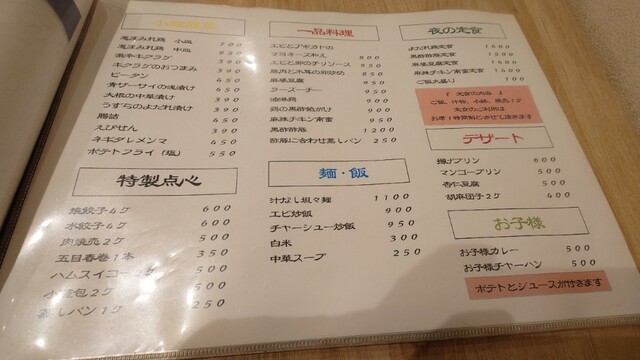 小皿
鬼まみれ鶏 小皿 700
鬼まみれ鶏 中皿 950
390
キクラゲのおつまみ 390
ピータン 650
青ザーサイの浅漬け 450
大根の中華漬け 390
うずらのよだれ漬け 390
腸詰 650
えびせん 390
ネギダレメンマ 450
ポテトフライ(塩) 550
特製点心
焼餃子4ケ 600
水餃子4ケ 600
肉焼売2ケ 500
五目春巻1本 350
ハムスイコー 500
小籠包2ケ 500
蒸しパン1ケ 250
一品料理
エビとアボカドの
マヨネーズ和え 800
エビと卵のチリソース 950
豚肉と木耳の卵炒め 850
麻婆豆腐 950
ラーズーチー 950
油淋鶏 900
鶏の黒酢餡がけ 900
麻辣チキン南蛮 950
黒酢酢豚 1200
酢豚に合わせ蒸しパン 250
麺・飯
汁なし坦々麺 1100
エビ炒飯 900
チャーシュー炒飯 950
白米 300
中華スープ 250
夜の定食
よだれ鶏定食 1600
黒酢酢豚定食 1600
麻婆豆腐定食 1600
麻辣チキン南蛮定食 1600
ご飯大盛り 100
【 定食の内容 】
ご飯、汁物、小鉢、焼売1ケ
定食のご利用は
お席1時間制とさせて頂きます
デザート
揚げプリン 600
マンゴープリン 500
杏仁豆腐 500
胡麻団子2ケ 400
お子様
お子様カレー 500
お子様チャーハン 500
ポテトとジュースが付きます